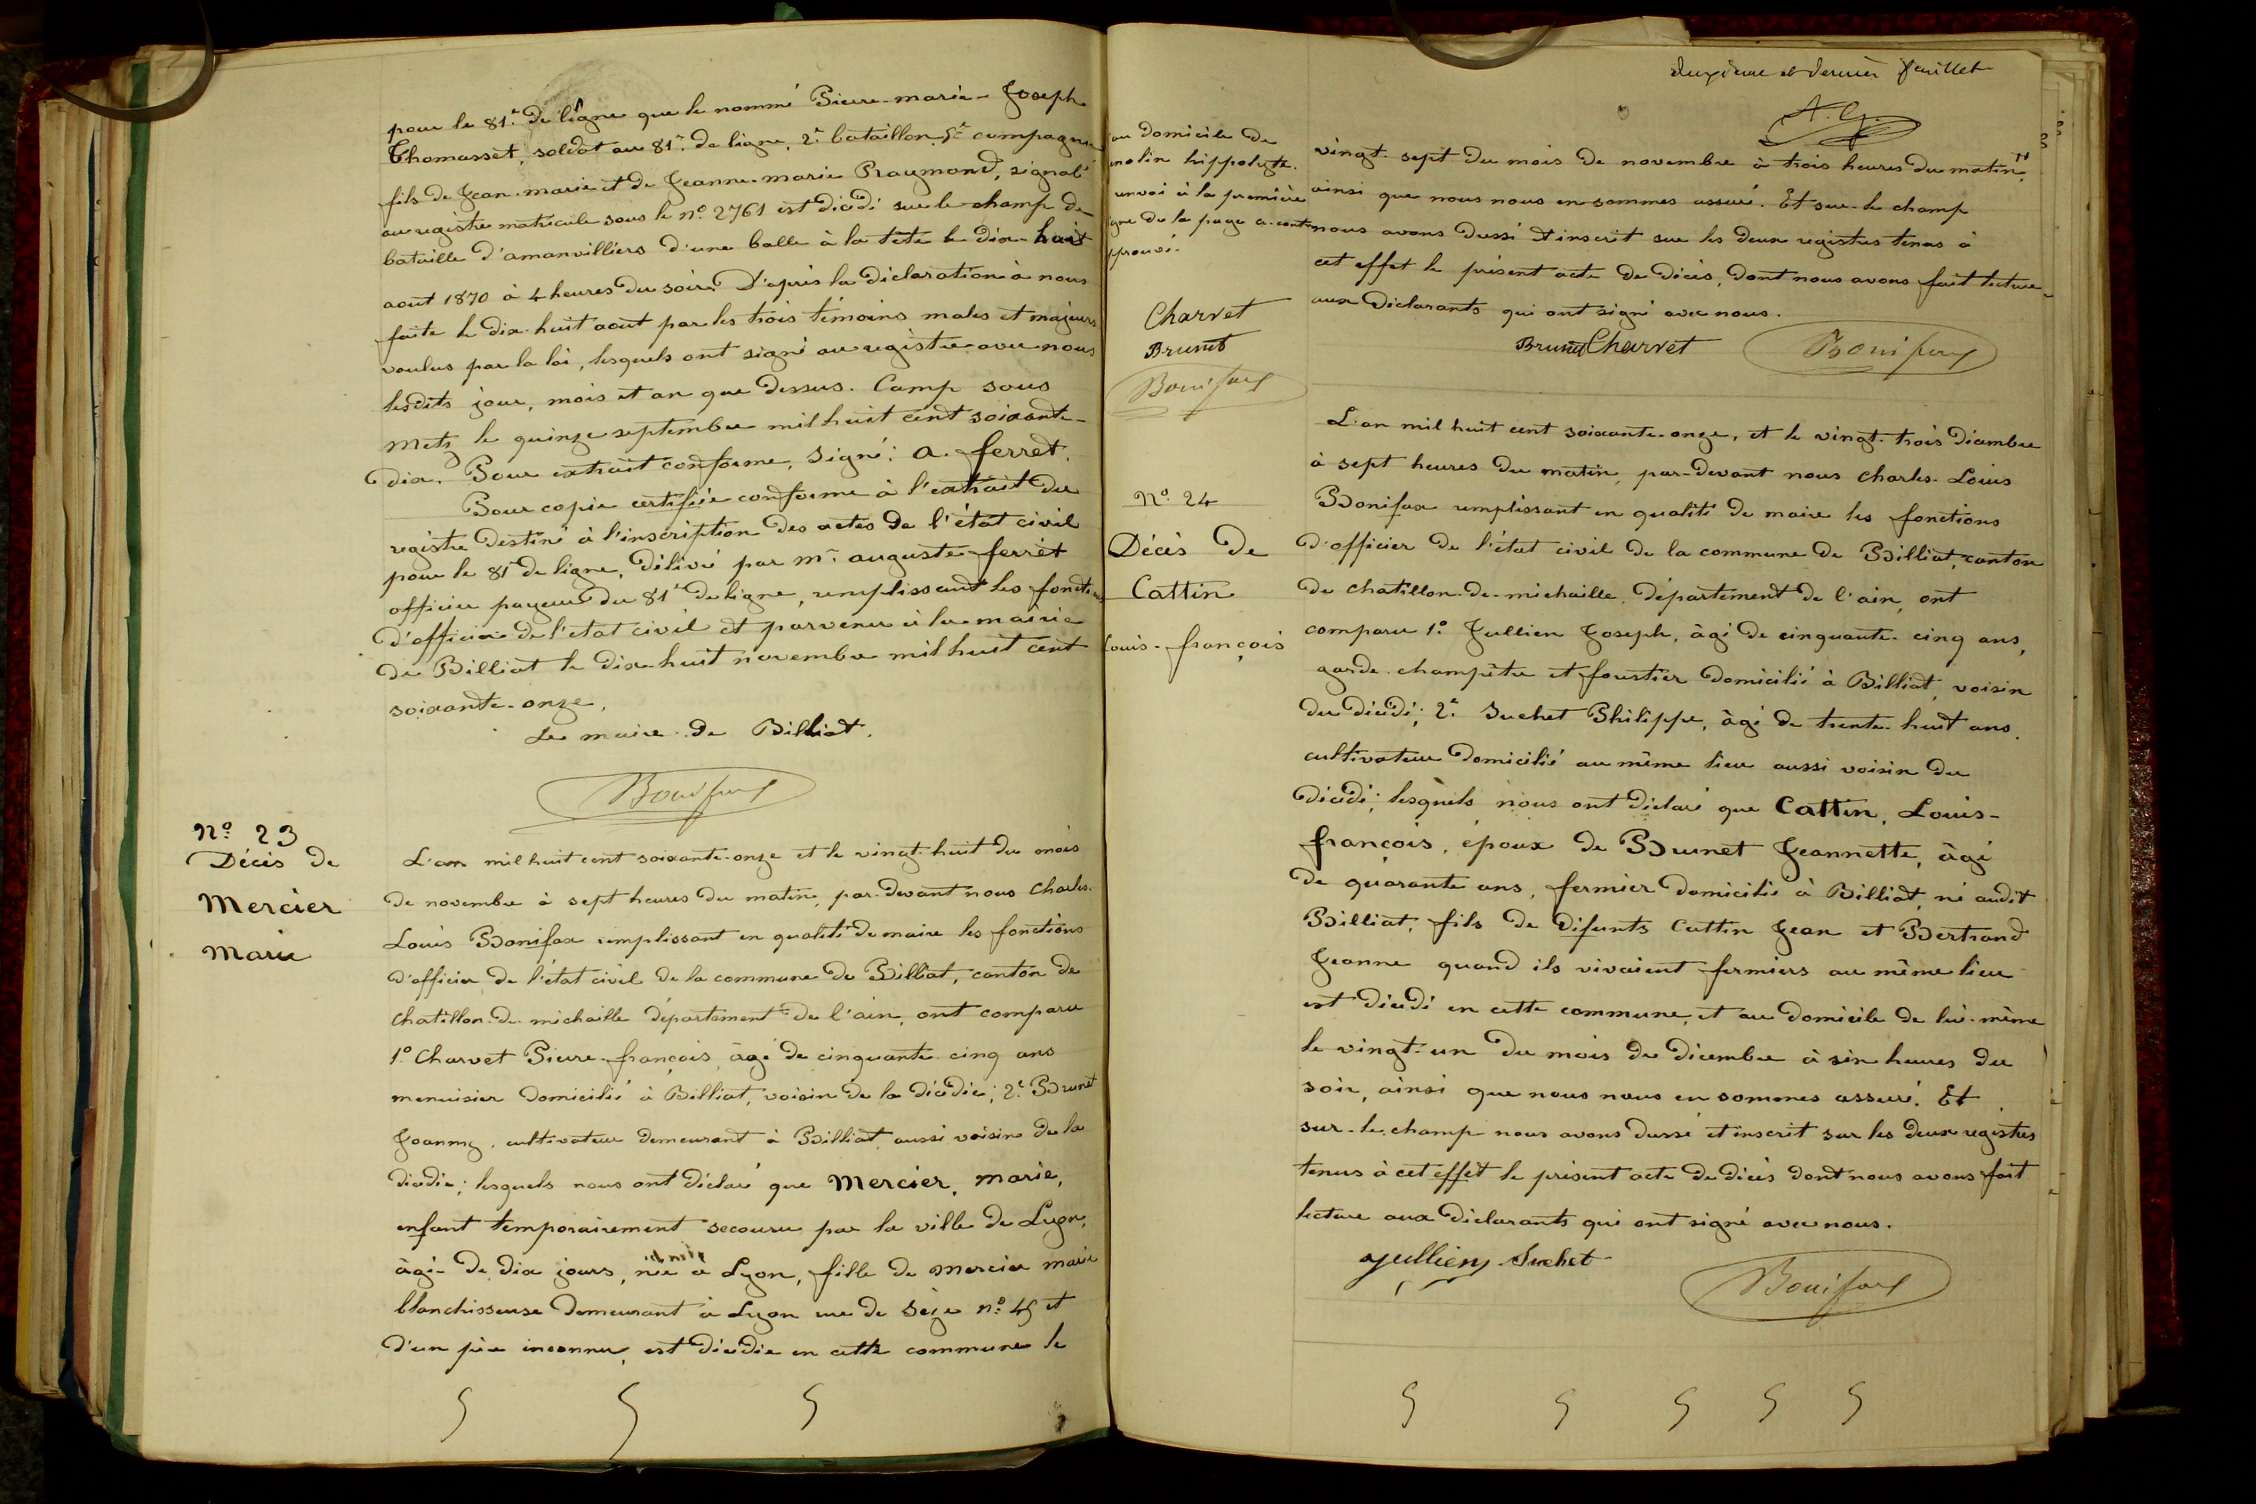 pour le 81e de ligne que le nommé Pierre-marie-Joseph
Thomasset, soldat au 81e de ligne, 2e bataillon, 5e compagnie
fils de Jean-marie et de Jeanne-marie Raymond, signalé
au registre matricule sous le no 2761 est décédé sur le champ de
bataille d'amanvilliers d'une balle à la tête le dix-huit
aout 1870 à 4 heures du soir. D'après la déclaration à nous
faite le dix-huit aout par les trois témoins males et majeurs
voulus par la loi, lesquels ont signé au registre avec nous
lesdits jour, mois et an que dessus. Camp sous
Metz le quinze septembre mil huit cent soixante-
dix. Pour extrait conforme, signé: a. ferret.
Pour copie certifiée conforme à l'extrait du
registre destiné à l'inscription des actes de l'état civil
pour le 81e de ligne, délivré par mr auguste ferret
officier payeur du 81e de ligne, remplissant les fonctions
d'officier de l'état civil et parvenu à la mairie
de Billiat le dix-huit novembre mil huit cent
soixante-onze.
Le maire de Billiat.
Bonifax
No 23
Décès de
Mercier
Marie
L'an mil huit cent soixante-onze et le vingt-huit du mois
de novembre à sept heures du matin, par-devant nous Charles-
Louis Bonifax remplissant en qualité de maire les fonctions
d'officier de l'état civil de la commune de Billiat, canton de
Chatillon-de-michaille département de l'ain, ont comparu
1o Charvet Pierre-françois, âgé de cinquante-cinq ans
menuisier domicilié à Billiat, voisin de la décédée; 2e Brunet
Joanny, cultivateur demeurant à Billiat aussi voisin de la
décédée; lesquels nous ont déclaré que Mercier, marie,
enfant temporairement secouru par la ville de Lyon,
âgé de dix jours, née à Lyon, fille de mercier marie
blanchisseuse demeurant à Lyon rue de Sèze no 45 et
d'un père inconnu, est décédée en cette commune le
deuxième et dernier feuillet
A. G.
au domicile de
molin hippolyte.
renvoi à la première
ligne de la page a-contre
pprouvé.
Charvet
Brunet
Bonifax
vingt-sept du mois de novembre à trois heures du matin,
ainsi que nous nous en sommes assuré. Et sur-le-champ
nous avons dressé et inscrit sur les deux registres tenus à
cet effet le présent acte de décès, dont nous avons fait lecture
aux Déclarants qui ont signé avec nous.
Brunet Charvet Bonifax
No 24
Décès de
Cattin
Louis-françois
L'an mil huit cent soixante-onze, et le vingt-trois décembre
à sept heures du matin, par-devant nous Charles-Louis
Bonifax remplissant en qualité de maire les fonctions
d'officier de l'état civil de la commune de Billiat, canton
de chatillon-de-michaille, département de l'ain, ont
comparu 1o Jullien Joseph, âgé de cinquante-cinq ans,
garde-champêtre et forestier domicilié à Billiat, voisin
du décédé; 2e Suchet Philippe, âgé de trente-huit ans,
cultivateur domicilié au même lieu aussi voisin du
décédé; lesquels nous ont déclaré que Cattin, Louis-
françois, époux de Brunet Jeannette, âgé
de quarante ans, fermier domicilié à Billiat, né audit
Billiat, fils de défunts Cattin Jean et Bertrand
Jeanne quand ils vivaient fermiers au même lieu
est décédé en cette commune, et au domicile de lui-même
le vingt-un du mois de décembre à six heures du
soir, ainsi que nous nous en sommes assuré. Et
sur-le-champ nous avons dressé et inscrit sur les deux registres
tenus à cet effet le présent acte de décès dont nous avons fait
lecture aux Déclarants qui ont signé avec nous.
Jullien Suchet
Bonifax